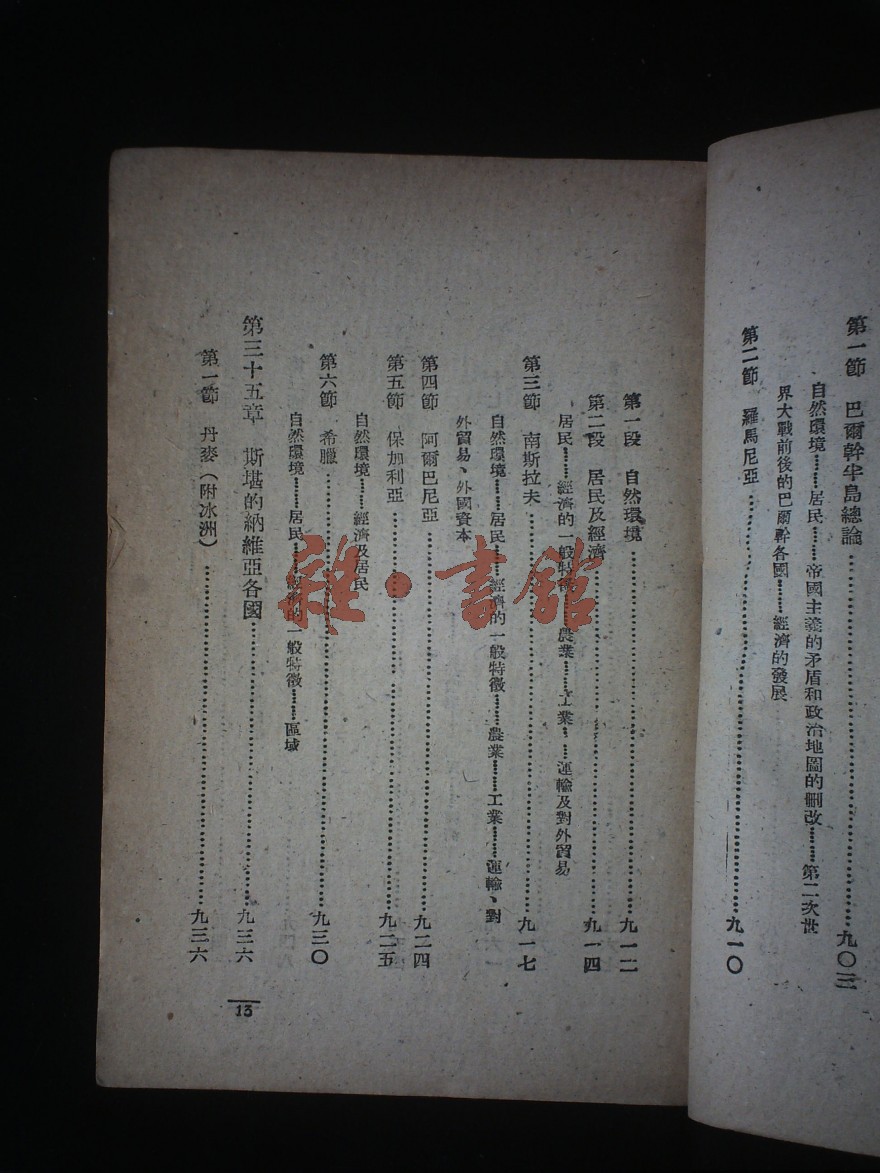 第一節　巴爾幹半島總論…………九〇三
自然環境……居民……帝國主義的矛盾和政治地圖的刪改……第二次世
界大戰前後的巴爾幹各國……經濟的發展
第二節　羅馬尼亞…………九一〇
第一段　自然環境…………九一二
第二段　居民及經濟…………九一四
居民……經濟的一般特徵……農業……工業……運輸及對外貿易
第三節　南斯拉夫…………九一七
自然環境……居民……經濟的一般特徵……農業……工業……運輸、對
外貿易、外國資本
第四節　阿爾巴尼亞…………九二四
第五節　保加利亞…………九二五
自然環境……經濟及居民
第六節　希臘…………九三〇
自然環境……居民……經濟的一般特徵……區域
第三十五章　斯堪的納維亞各國…………九三六
第一節　丹麥（附冰洲）…………九三六
13
雜·書館